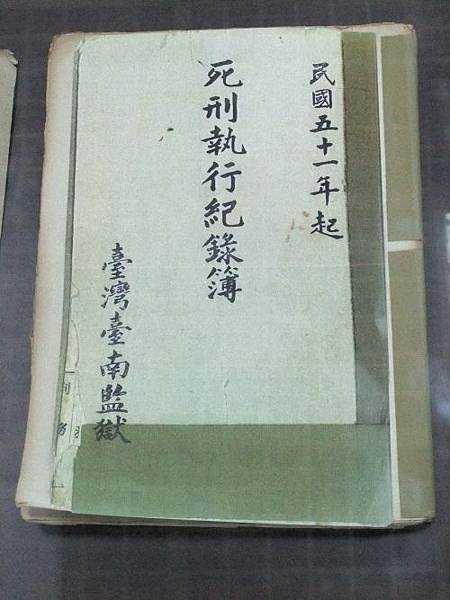 民國五十一年起
死刑執行紀錄簿
臺灣臺南監獄